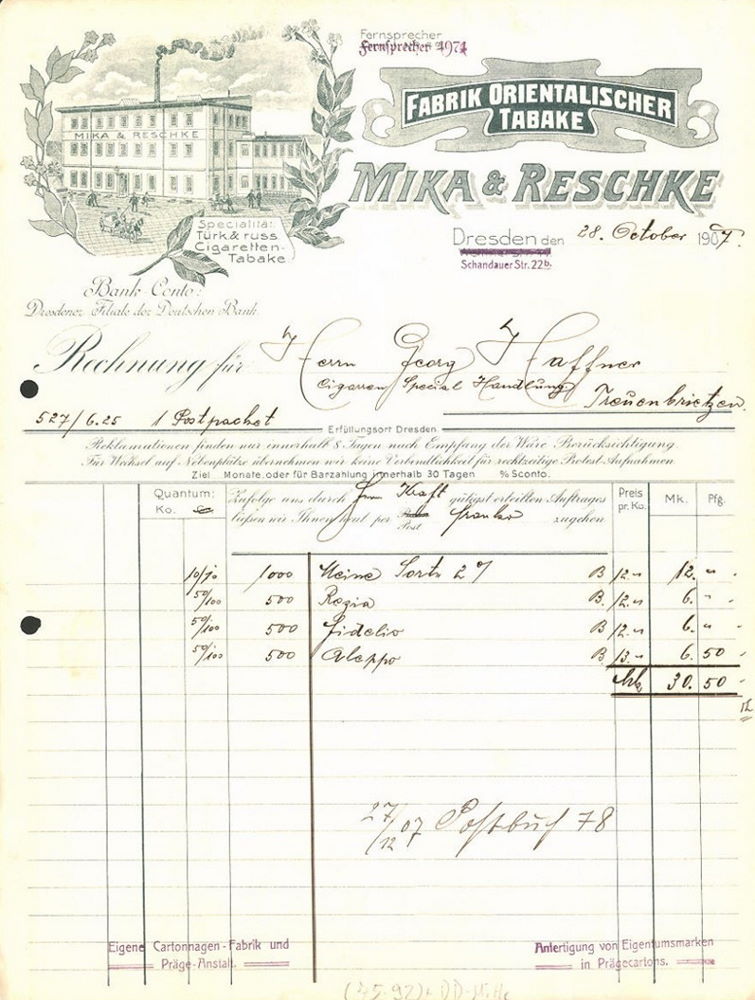 Fernsprecher
Fernsprecher 4971
FABRIK ORIENTALISCHER
TABAKE
MIKA & RESCHKE
MIKA & RESCHKE
Specialität:
Türk & russ.
Cigaretten-
Tabake
Dresden den 28. October 1907.
Schandauer Str. 22b.
Bank-Conto:
Dresdener Filiale der Deutschen Bank.
Rechnung für Herrn Georg Haffner
Cigarren Special Handlung
Treuenbrietzen
527/6.25 1 Postpacket
Erfüllungsort Dresden.
Reklamationen finden nur innerhalb 8 Tagen nach Empfang der Ware Berücksichtigung.
Für Wechsel auf Nebenplätze übernehmen wir keine Verbindlichkeit für rechtzeitige Protest-Aufnahmen
Ziel Monate, oder für Barzahlung innerhalb 30 Tagen % Sconto.
Quantum: Ko.
Zufolge uns durch Herrn Kraft gütigst erteilten Auftrages
liessen wir Ihnen heut per Post franko zugehen
Preis pr. Ko. Mk. Pfg.
10/10 1000 Meine Sorte 27 B 12.- 12. "
50/100 500 Regia B. 12.- 6. "
50/100 500 Fidelio B 12.- 6. "
50/100 500 Aleppo B 13.- 6. 50
Mk 30. 50
27/12 07 Postbuch 78
Eigene Cartonnagen-Fabrik und
Präge-Anstalt.
Anfertigung von Eigentumsmarken
in Prägecartons.